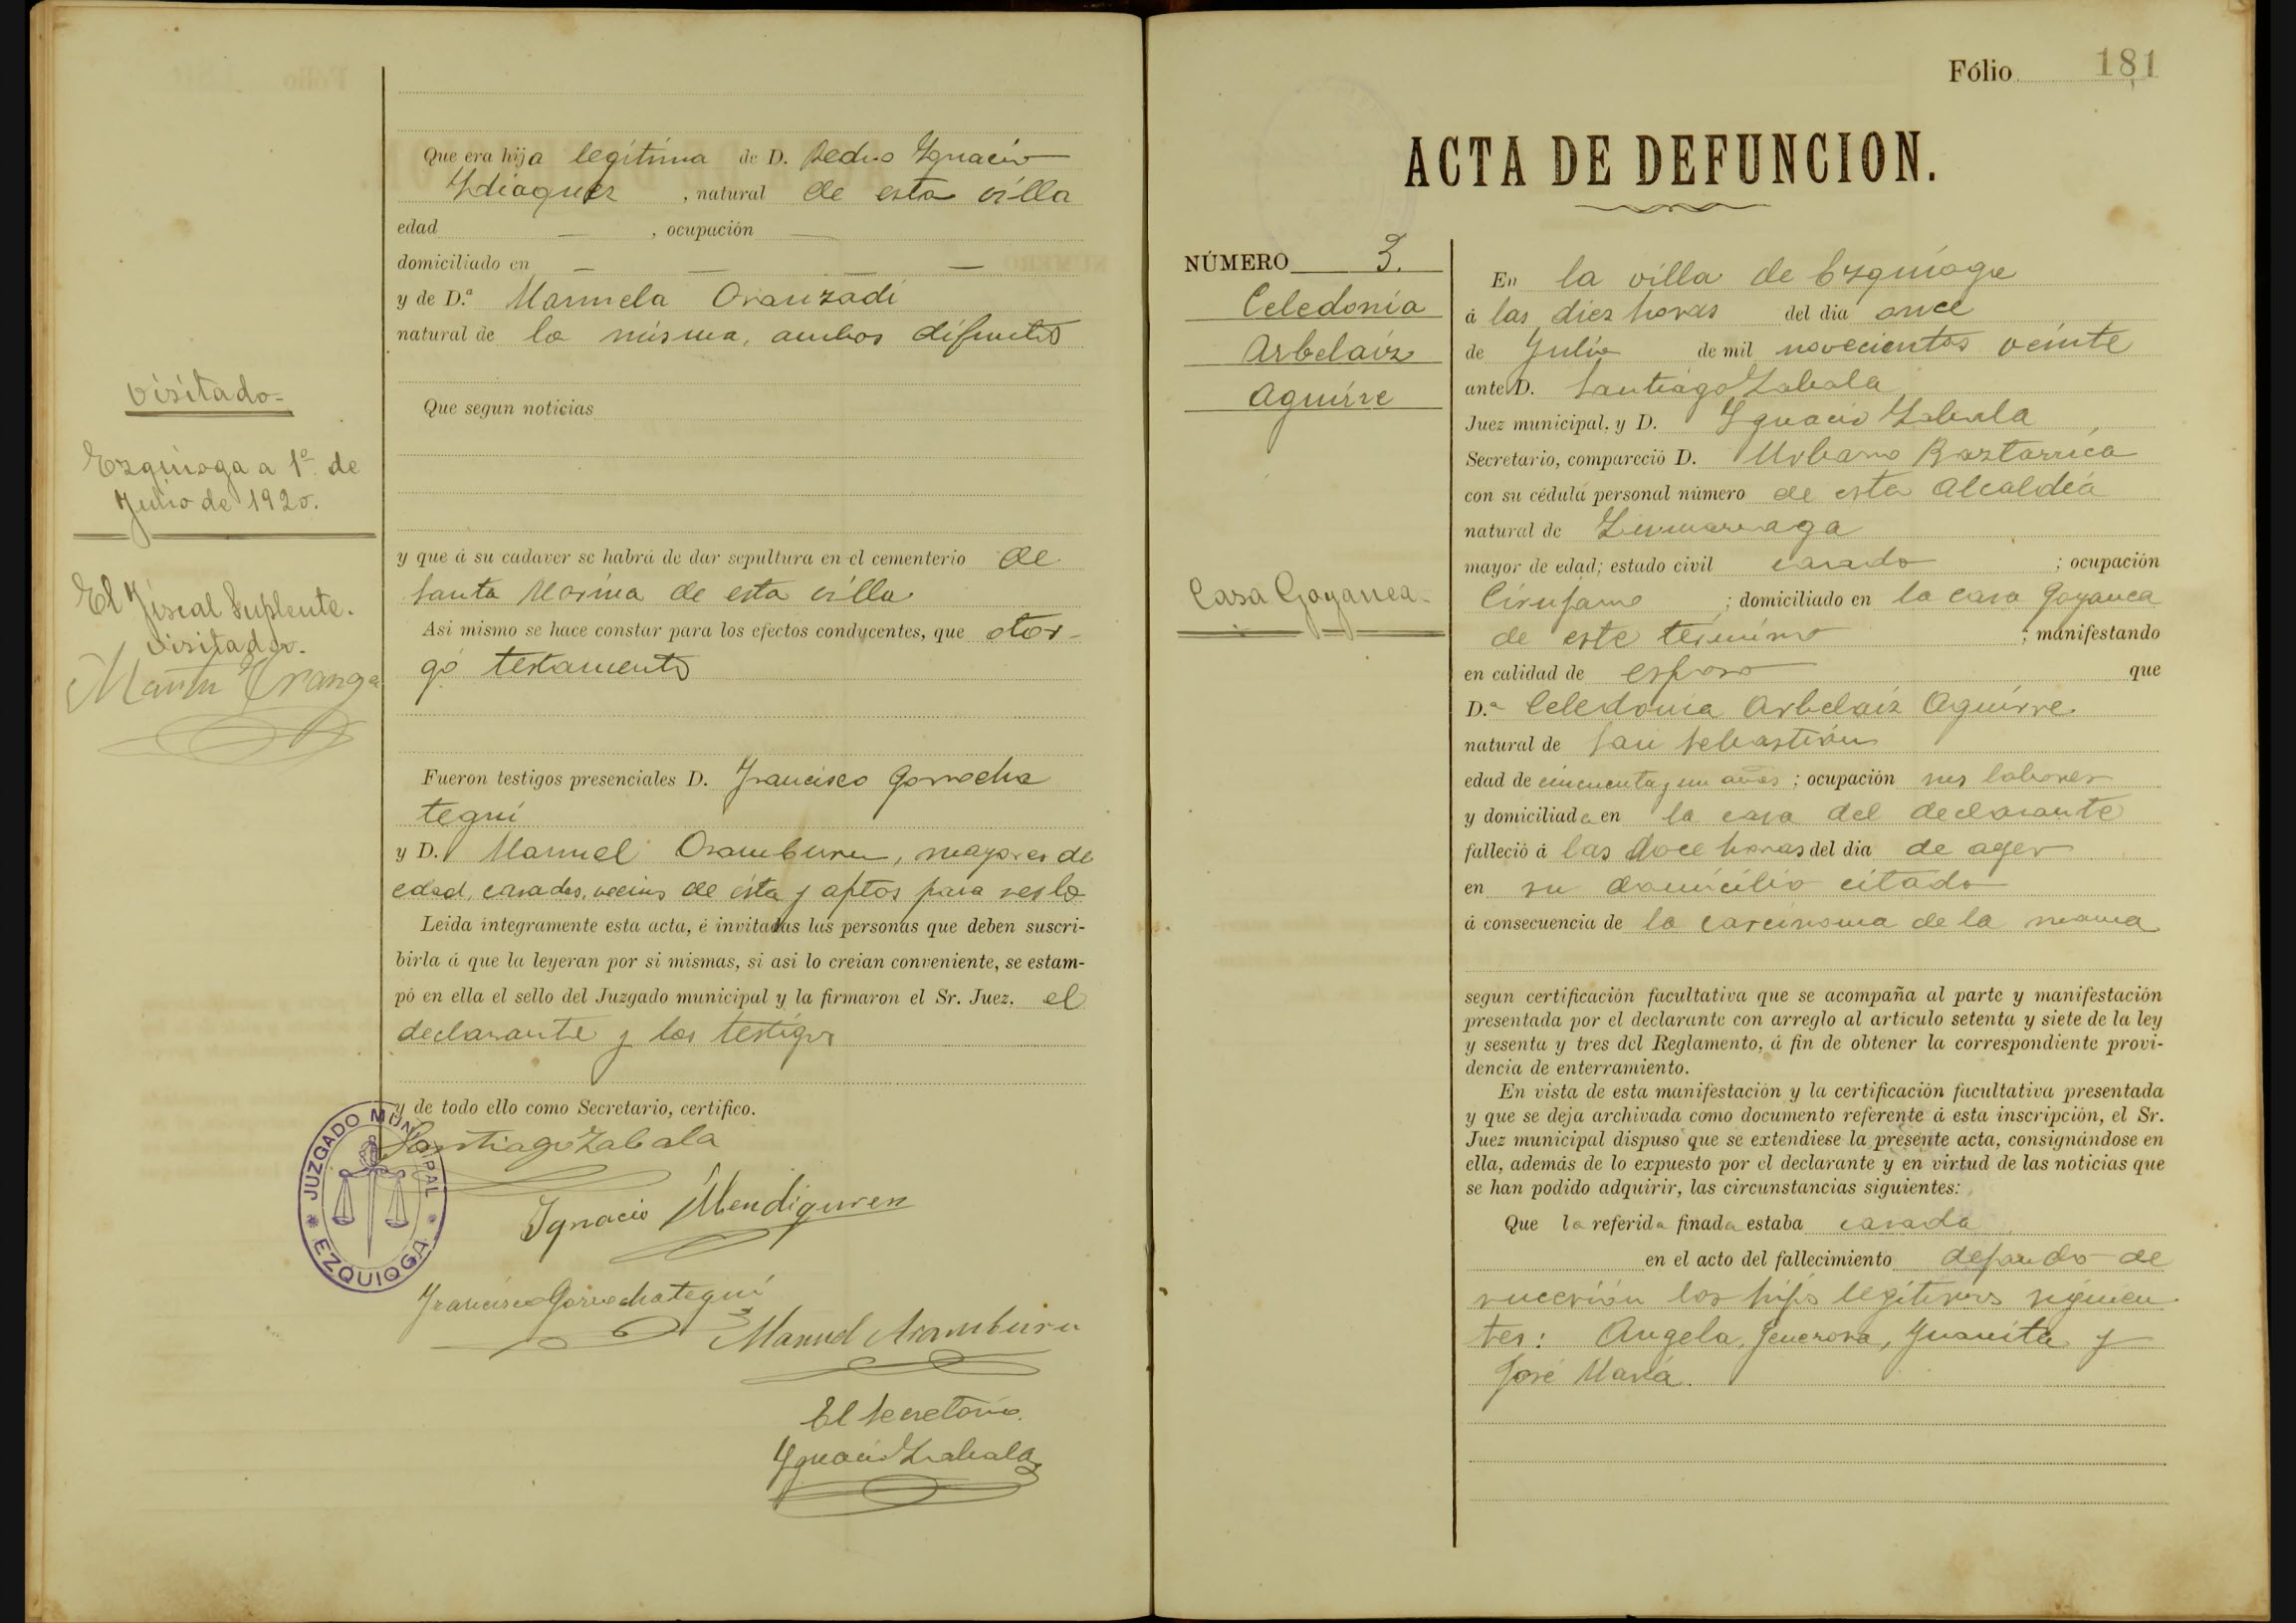 Que era hija legítima de D. Pedro Ygnacio
Ydiaquez, natural de esta villa
edad —, ocupación —
domiciliado en — — — —
y de D.ª Manuela Oranzadi
natural de la misma, ambos difuntos
Que segun noticias
y que á su cadaver se habrá de dar sepultura en el cementerio de
Santa Marina de esta villa
Asi mismo se hace constar para los efectos conducentes, que otor-
gó testamento
Fueron testigos presenciales D. Francisco Gorrocha
tegui
y D. Manuel Oramburu, mayores de
edad, casados, vecinos de ésta y aptos para serlo
Leida íntegramente esta acta, é invitadas las personas que deben suscri-
birla á que la leyeran por si mismas, si asi lo creian conveniente, se estam-
pó en ella el sello del Juzgado municipal y la firmaron el Sr. Juez. el
declarante y los testigos
y de todo ello como Secretario, certifico.
Santiago Zabala
Ygnacio Mendiguren
Francisco Gorrochategui
Manuel Aramburu
El Secretario
Ygnacio Zabala
JUZGADO MUNICIPAL
* EZQUIOGA *
Visitado=
Ezquioga a 1º de
Julio de 1920.
El Fiscal Suplente.
Visitador.
Martin Oranga
Fólio 181
ACTA DE DEFUNCION.
NÚMERO 3.
Celedonia
Arbelaiz
Aguirre
Casa Goyanea-
En la villa de Ezquioga
á las diez horas del dia once
de Julio de mil novecientos veinte
ante D. Santiago Zabala
Juez municipal, y D. Ygnacio Zabala
Secretario, compareció D. Urbano Baztarrica
con su cédula personal número de esta Alcaldía
natural de Zumarraga
mayor de edad; estado civil casado; ocupación
Cirujano; domiciliado en la casa Goyanea
de este término; manifestando
en calidad de esposo que
D.ª Celedonia Arbelaiz Aguirre
natural de San Sebastián
edad de cincuenta y un años; ocupación sus labores
y domiciliada en la casa del declarante
falleció á las doce horas del dia de ayer
en su domicilio citado
á consecuencia de la carcinoma de la mama
segun certificación facultativa que se acompaña al parte y manifestación
presentada por el declarante con arreglo al artículo setenta y siete de la ley
y sesenta y tres del Reglamento, á fin de obtener la correspondiente provi-
dencia de enterramiento.
En vista de esta manifestación y la certificación facultativa presentada
y que se deja archivada como documento referente á esta inscripción, el Sr.
Juez municipal dispuso que se extendiese la presente acta, consignándose en
ella, además de lo expuesto por el declarante y en virtud de las noticias que
se han podido adquirir, las circunstancias siguientes:
Que la referida finada estaba casada
en el acto del fallecimiento dejando de
sucesión los hijos legítimos siguien-
tes: Angela, Generosa, Juanita y
José María.